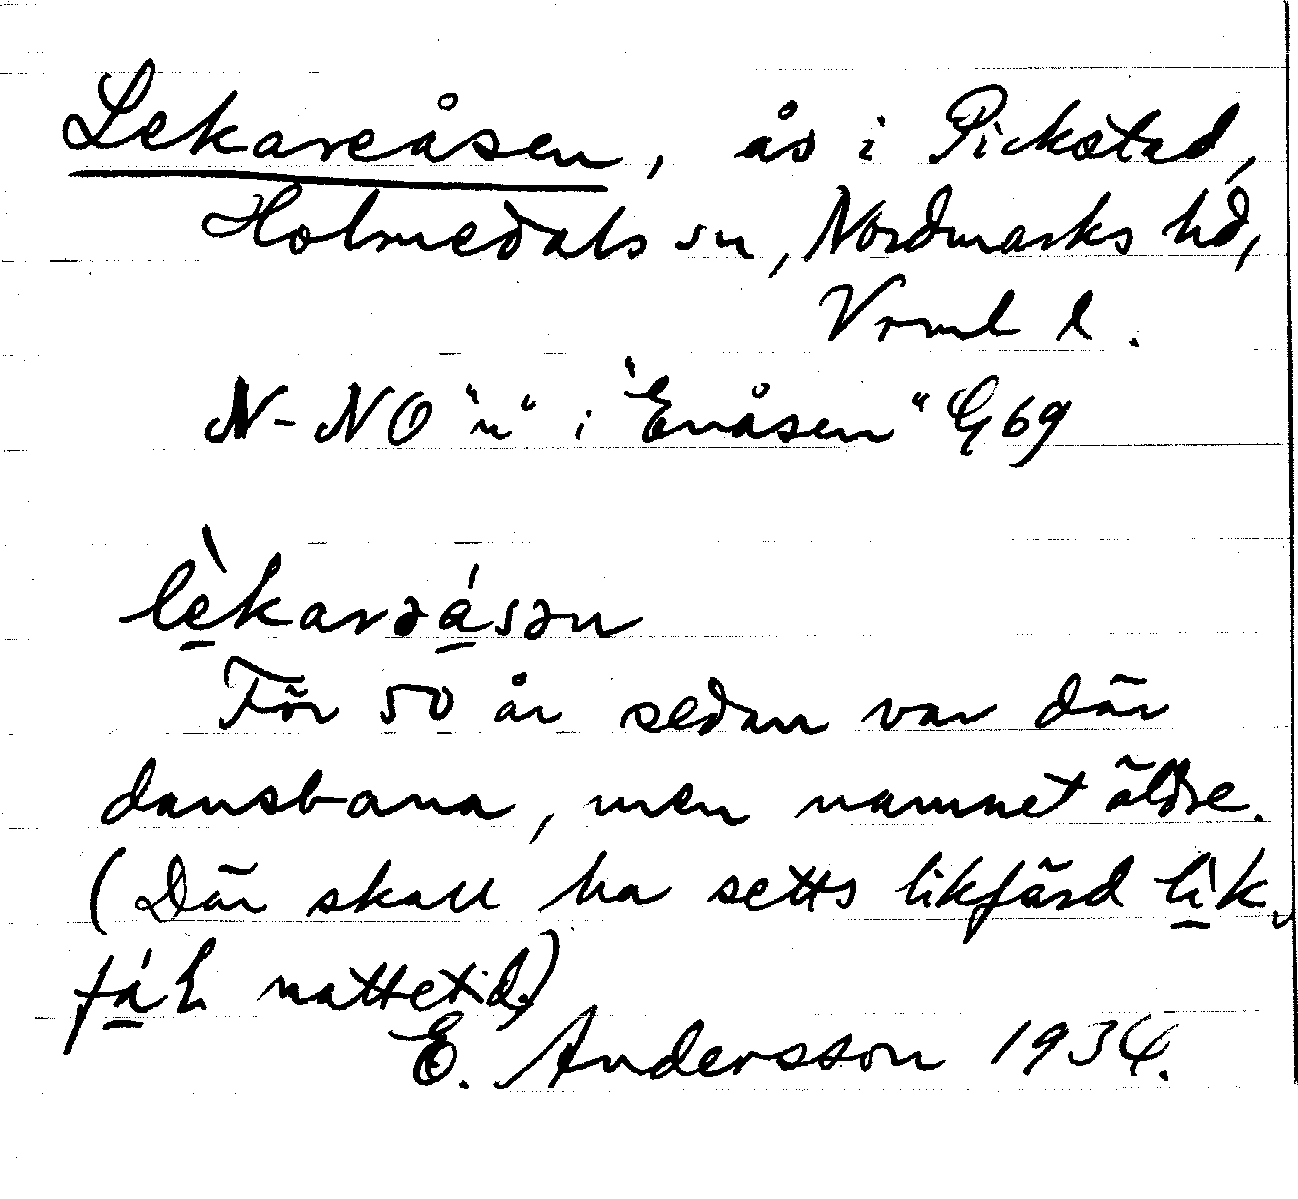 Lekareåsen, ås i Pickstad,
Holmedals sn, Nordmarks hd,
Vrml l.
N-NO "n" i "Enåsen" G69
lèkarəásən
För 50 år sedan var där
dansbana, men namnet äldre.
(Där skall ha setts likfärd lìk-
fáL nattetid.)
E. Andersson 1934.